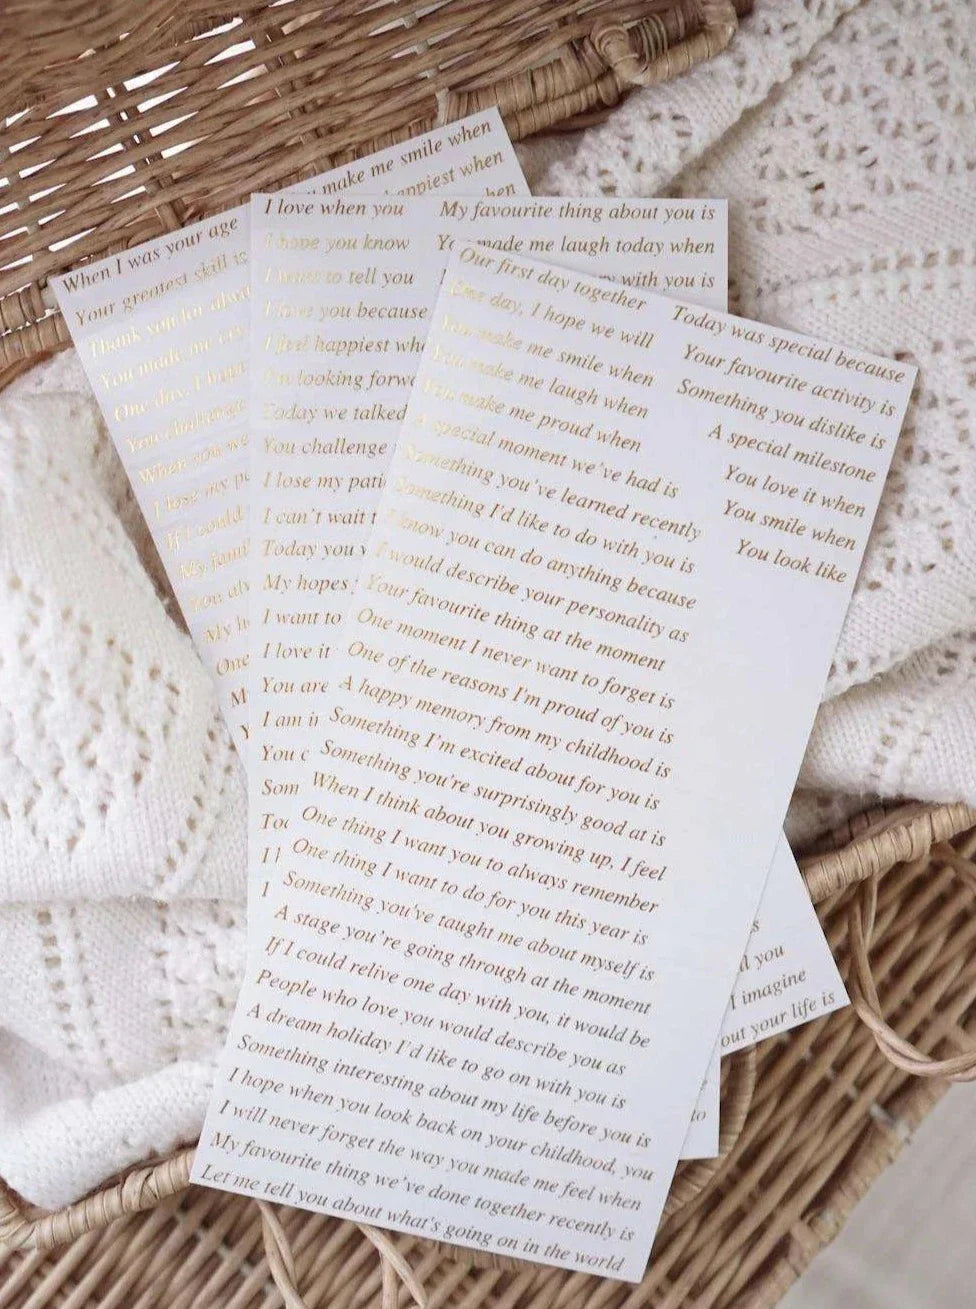 make me smile when
happiest when
when
When I was your age
Your greatest skill is
Thank you for
You made me
One day, I
You challenge
When you we
I lose my
If I could
My
You
My
One
M
Y
I love when you
I hope you know
I want to tell you
I love you because
I feel happiest
I'm looking
Today we talked
You challenge
I lose my
I can't wait
Today you
My hopes
I want to
I love it
You are
I am
You
Som
I
I
My favourite thing about you is
made me laugh today when
with you is
Our first day together
One day, I hope we will
You make me smile when
You make me laugh when
You make me proud when
A special moment we've had is
Something you've learned recently
Something I'd like to do with you is
I know you can do anything because
I would describe your personality as
Your favourite thing at the moment
One moment I never want to forget is
One of the reasons I'm proud of you is
A happy memory from my childhood is
Something I'm excited about for you is
Something you're surprisingly good at is
When I think about you growing up, I feel
One thing I want you to always remember
One thing I want to do for you this year is
Something you've taught me about myself is
A stage you're going through at the moment
If I could relive one day with you, it would be
People who love you would describe you as
A dream holiday I'd like to go on with you is
Something interesting about my life before you is
I hope when you look back on your childhood, you
I will never forget the way you made me feel when
My favourite thing we've done together recently is
Let me tell you about what's going on in the world
Today was special because
Your favourite activity is
Something you dislike is
A special milestone
You love it when
You smile when
You look like
you
I imagine
out your life is